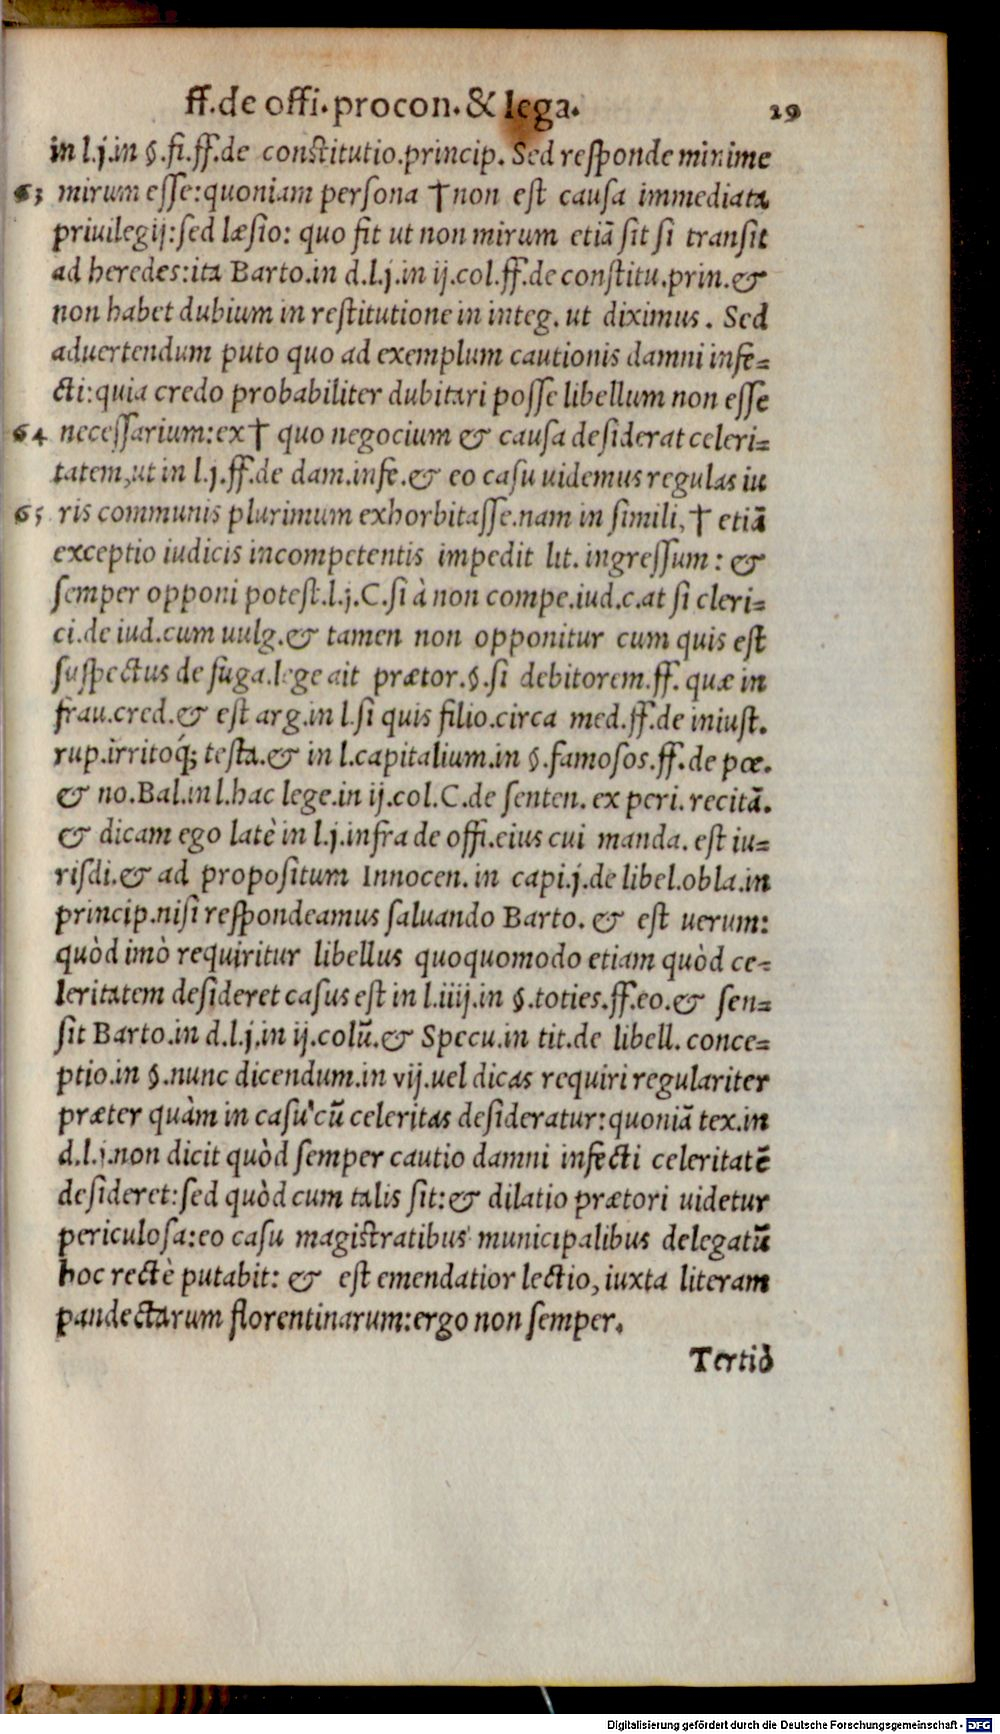 ff.de offi.procon.& lega. 29
in l.j.in §.fi.ff.de constitutio.princip. Sed responde minime
63 mirum esse:quoniam persona † non est causa immediata
priuilegij:sed læsio: quo fit ut non mirum etiã sit si transit
ad heredes:ita Barto.in d.l.j.in ij.col.ff.de constitu.prin.&
non habet dubium in restitutione in integ. ut diximus. Sed
aduertendum puto quo ad exemplum cautionis damni infe-
cti:quia credo probabiliter dubitari posse libellum non esse
64 necessarium:ex † quo negocium & causa desiderat celeri-
tatem,ut in l.j.ff.de dam.infe.& eo casu uidemus regulas iu
65 ris communis plurimum exhorbitasse.nam in simili, † etiã
exceptio iudicis incompetentis impedit lit. ingressum: &
semper opponi potest.l.j.C.si à non compe.iud.c.at si cleri-
ci.de iud.cum uulg.& tamen non opponitur cum quis est
suspectus de fuga.lege ait prætor.§.si debitorem.ff. quæ in
frau.cred.& est arg.in l.si quis filio.circa med.ff.de iniust.
rup.irritoq́; testa.& in l.capitalium.in §.famosos.ff.de pœ.
& no.Bal.in l.hac lege.in ij.col.C.de senten. ex peri. recitã.
& dicam ego latè in l.j.infra de offi.eius cui manda. est iu-
risdi.& ad propositum Innocen. in capi.j.de libel.obla.in
princip.nisi respondeamus saluando Barto. & est uerum:
quòd imò requiritur libellus quoquomodo etiam quòd ce-
leritatem desideret casus est in l.iiij.in §.toties.ff.eo.& sen-
sit Barto.in d.l.j.in ij.colũ.& Specu.in tit.de libell. conce-
ptio.in §.nunc dicendum.in vij.uel dicas requiri regulariter
præter quàm in casu cũ celeritas desideratur:quoniã tex.in
d.l.j.non dicit quòd semper cautio damni infecti celeritatẽ
desideret:sed quòd cum talis sit:& dilatio prætori uidetur
periculosa:eo casu magistratibus municipalibus delegatũ
hoc rectè putabit: & est emendatior lectio, iuxta literam
pandectarum florentinarum:ergo non semper.
Tertiò
Digitalisierung gefördert durch die Deutsche Forschungsgemeinschaft - DFG